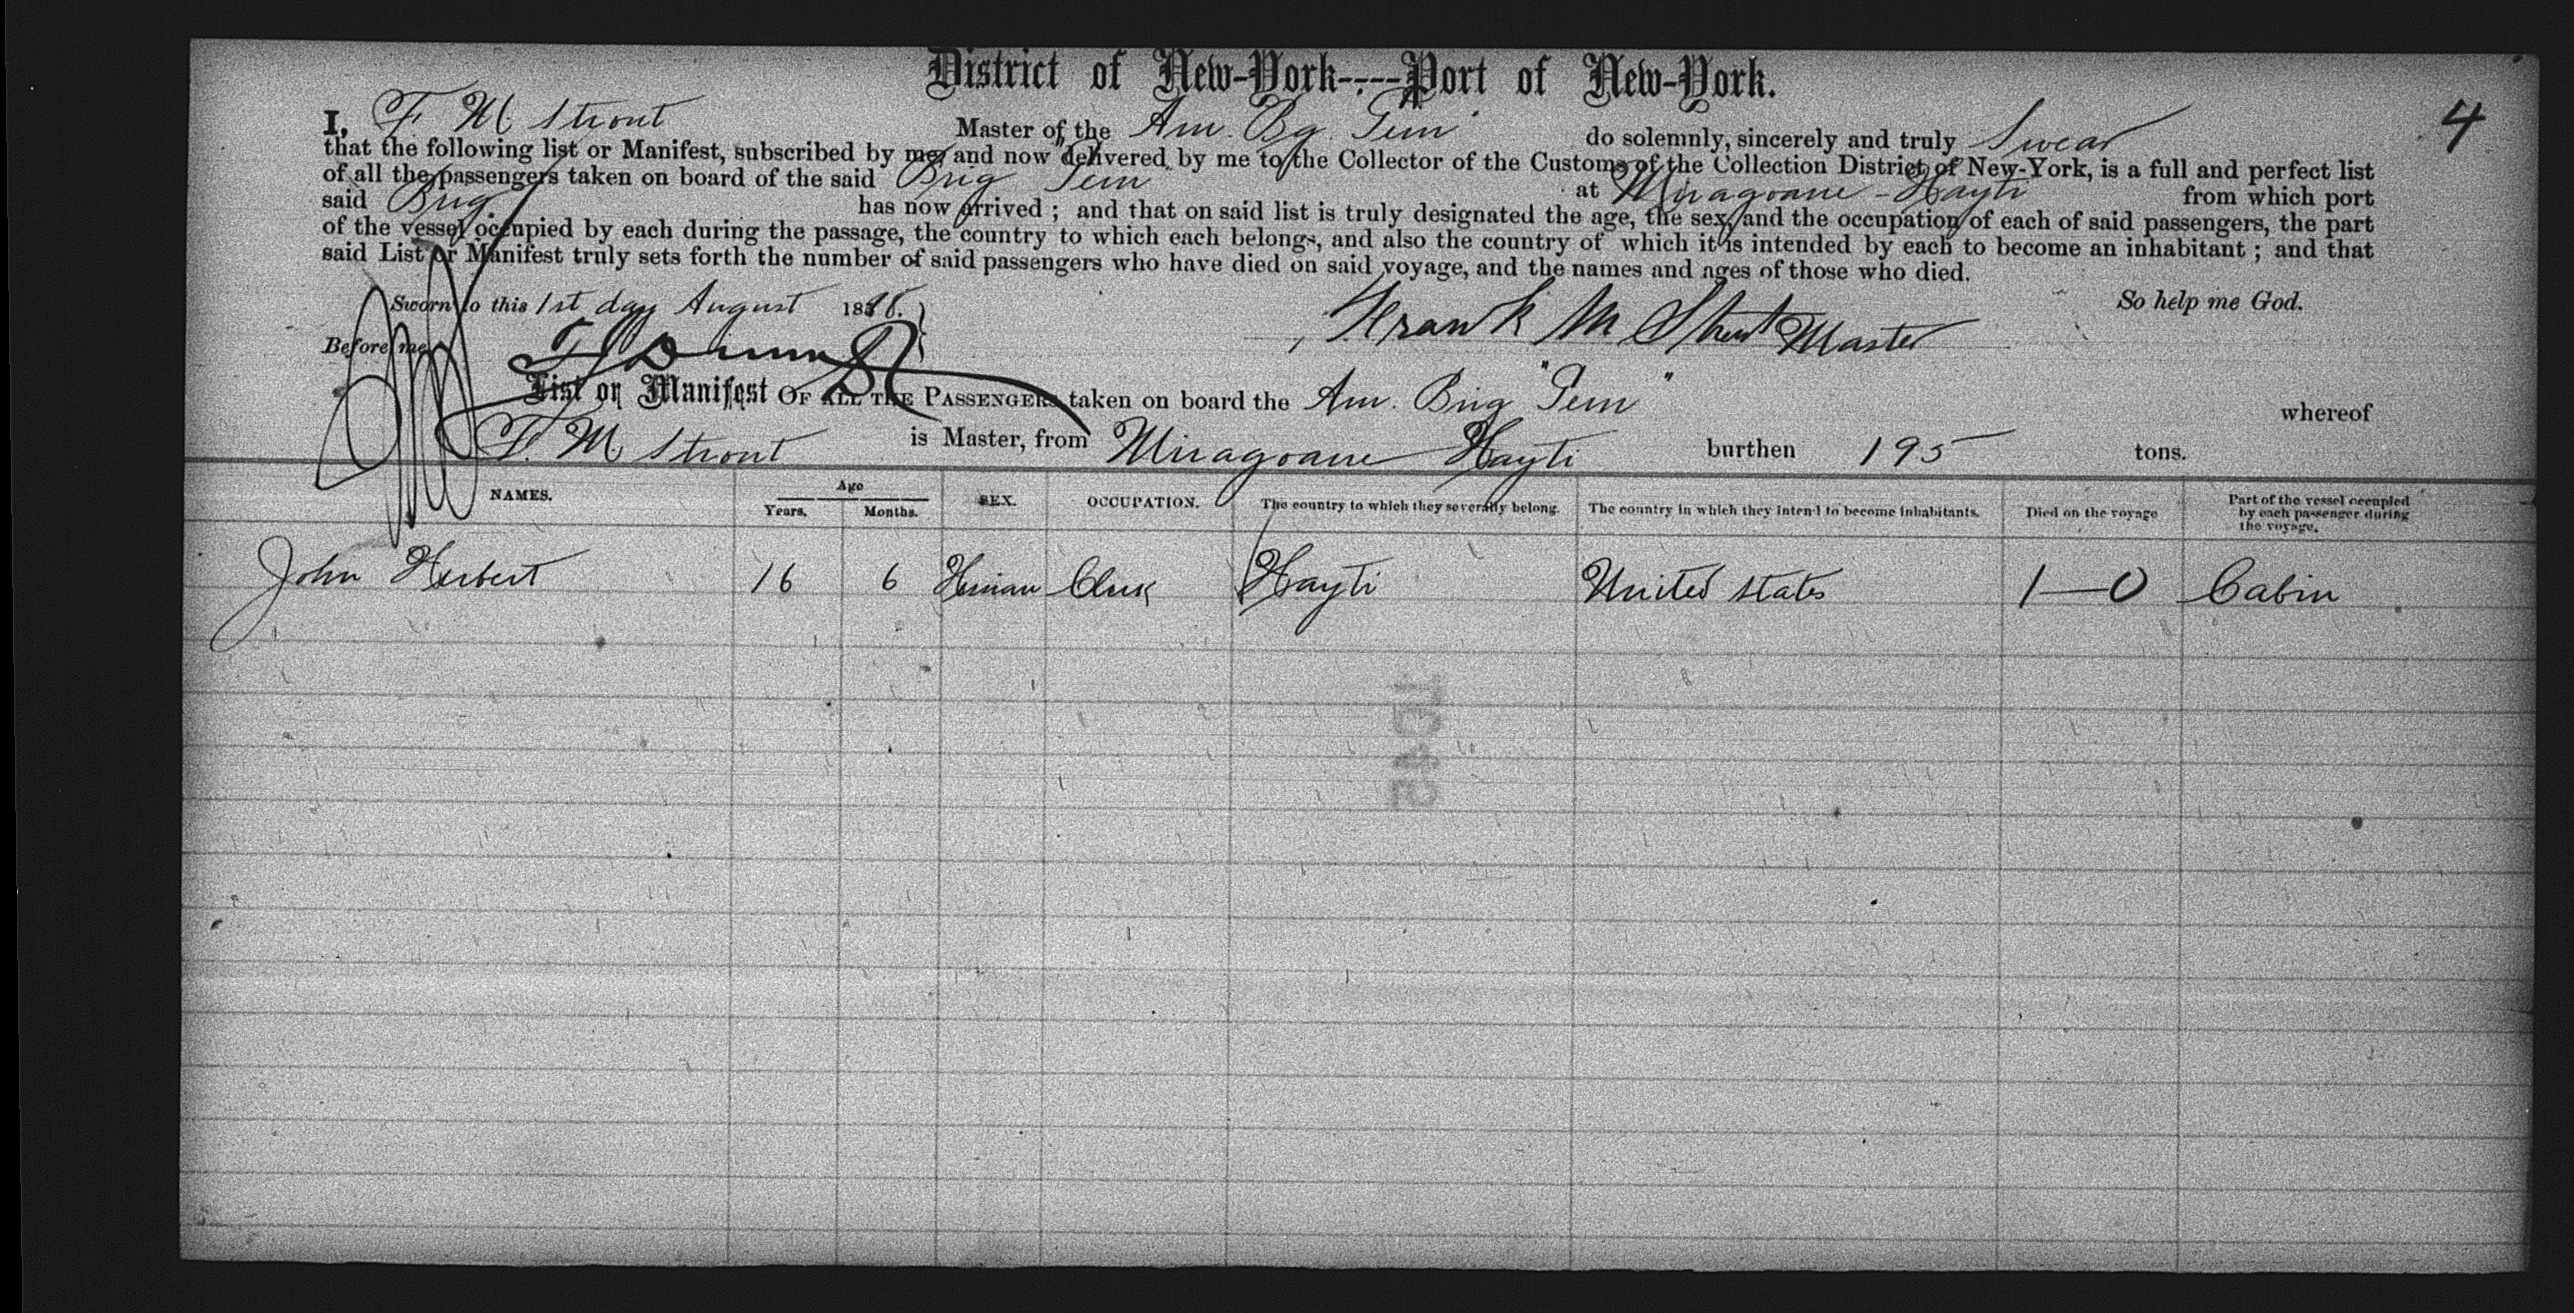 District of New-York----Port of New-York.
4
I, F. M. Strout Master of the Am. Bg. "Gem" do solemnly, sincerely and truly Swear
that the following list or Manifest, subscribed by me, and now delivered by me to the Collector of the Customs of the Collection District of New-York, is a full and perfect list
of all the passengers taken on board of the said Brig Gem at Miragoane - Hayti from which port
said Brig has now arrived; and that on said list is truly designated the age, the sex, and the occupation of each of said passengers, the part
of the vessel occupied by each during the passage, the country to which each belongs, and also the country of which it is intended by each to become an inhabitant; and that
said List or Manifest truly sets forth the number of said passengers who have died on said voyage, and the names and ages of those who died.
Sworn to this 1st day August 18 So help me God.
Before me Frank M Strout Master
List or Manifest OF ALL THE PASSENGERS taken on board the Am. Brig "Gem" whereof
F. M. Strout is Master, from Miragoane Hayti burthen 195 tons.
NAMES. Age Years. Months. SEX. OCCUPATION. The country to which they severally belong. The country in which they intend to become inhabitants. Died on the voyage Part of the vessel occupied by each passenger during the voyage.
John Herbert 16 6 Clerk Hayti United States 1—0 Cabin